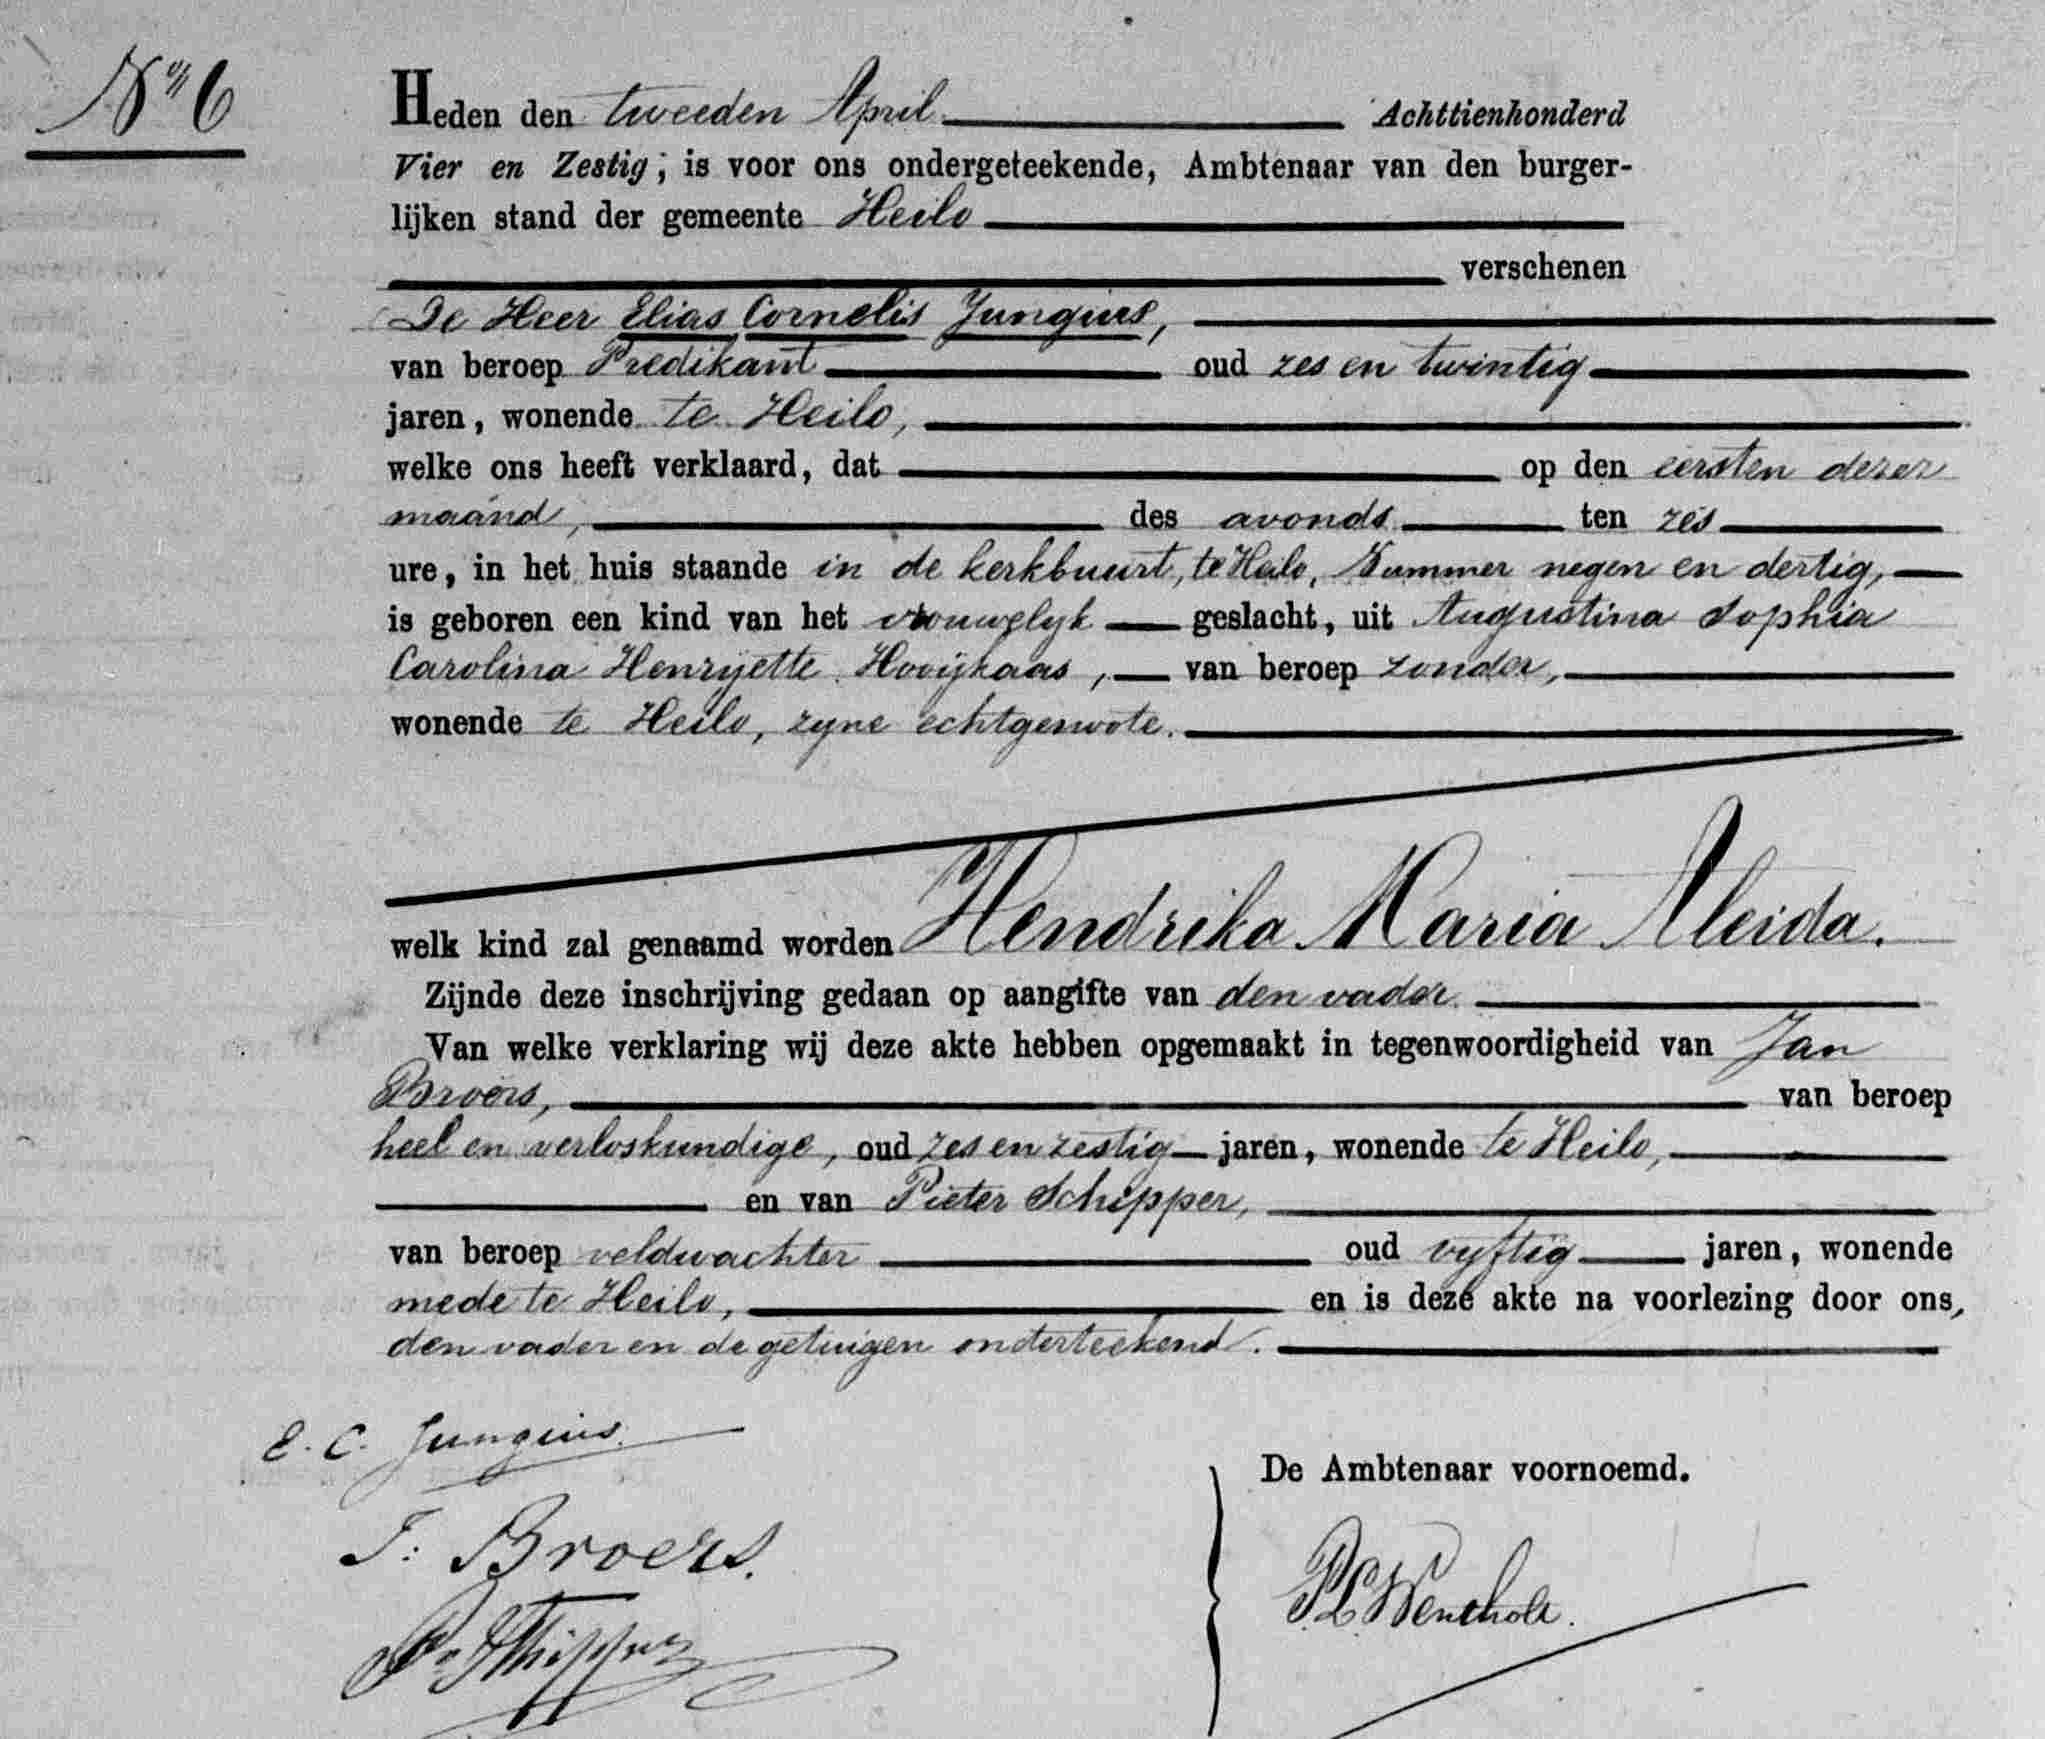 No 6
Heden den tweeden April Achttienhonderd
Vier en Zestig, is voor ons ondergeteekende, Ambtenaar van den burger-
lijken stand der gemeente Heilo
verschenen
De Heer Elias Cornelis Jungius,
van beroep Predikant oud zes en twintig
jaren, wonende te Heilo,
welke ons heeft verklaard, dat op den eersten dezer
maand, des avonds ten zes
ure, in het huis staande in de kerkbuurt, te Heilo, Nummer negen en dertig,
is geboren een kind van het vrouwelyk geslacht, uit Augustina Sophia
Carolina Henryette Hooijkaas, van beroep zonder,
wonende te Heilo, zyne echtgenoote.
welk kind zal genaamd worden Hendrika Maria Aleida.
Zijnde deze inschrijving gedaan op aangifte van den vader.
Van welke verklaring wij deze akte hebben opgemaakt in tegenwoordigheid van Jan
Broers, van beroep
heel en verloskundige, oud zes en zestig jaren, wonende te Heilo,
en van Pieter Schipper,
van beroep veldwachter oud vyftig jaren, wonende
mede te Heilo, en is deze akte na voorlezing door ons,
den vader en de getuigen onderteekend.
E. C. Jungius.
De Ambtenaar voornoemd.
J: Broers.
P. Schipper